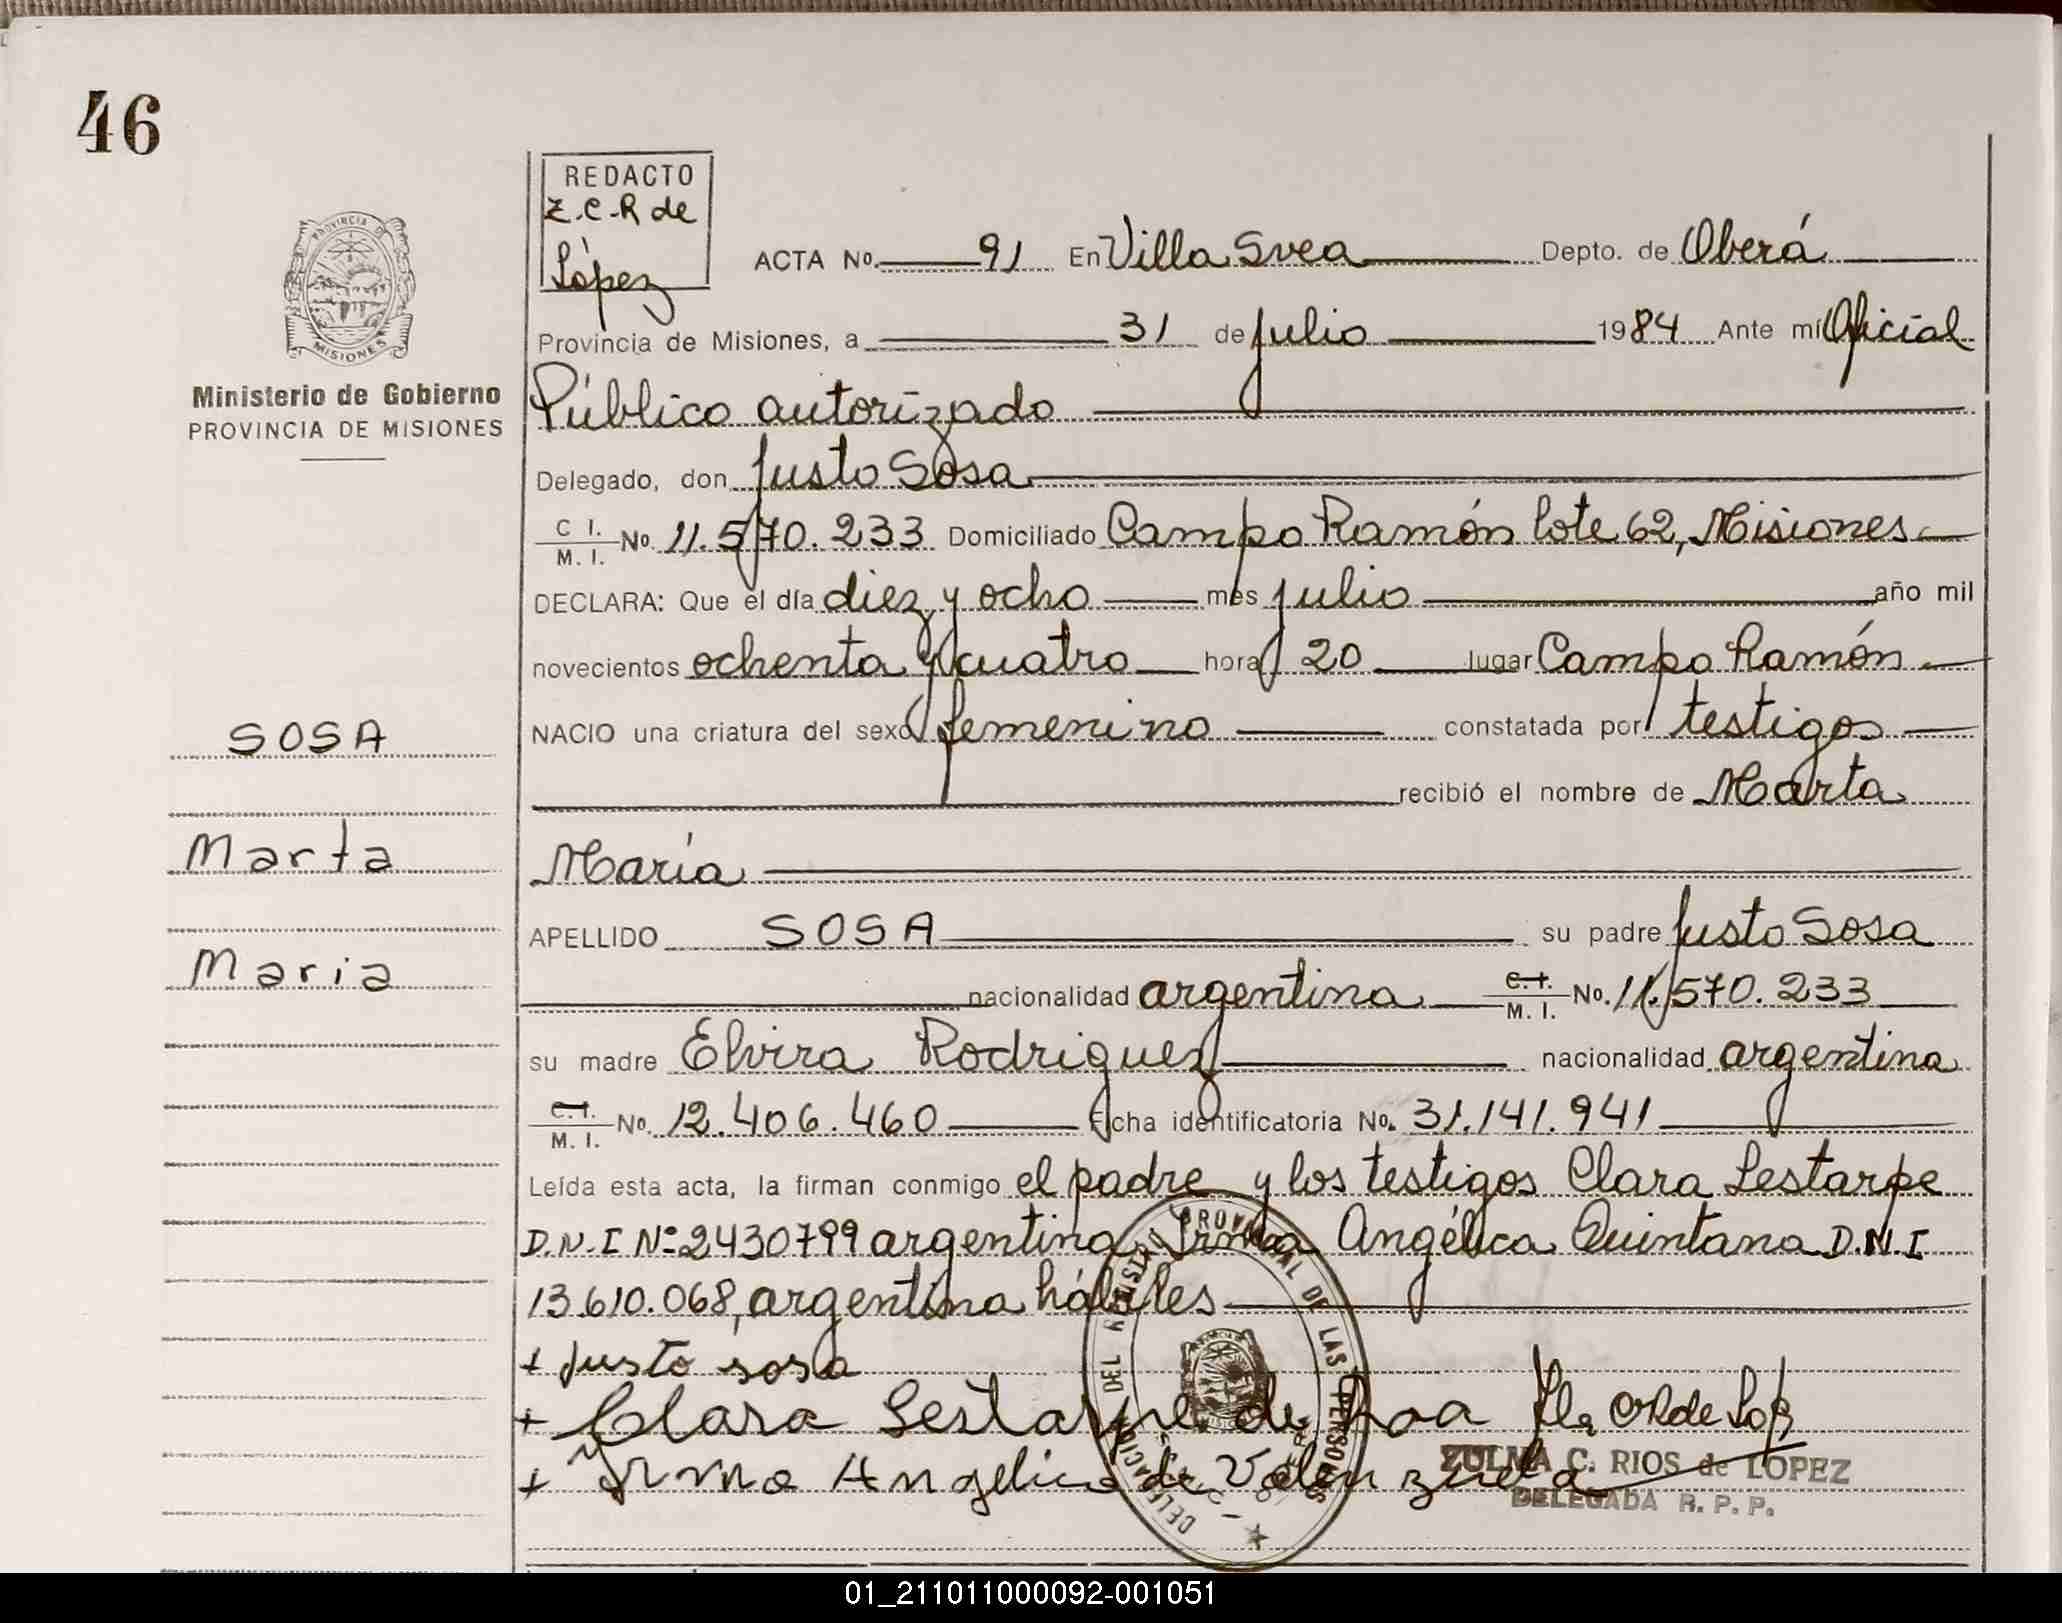 46
REDACTO
Z.C.R de
López
ACTA No. 91 En Villa Svea Depto. de Oberá
Provincia de Misiones, a 31 de julio 1984 Ante mí Oficial
Público autorizado
Delegado, don Justo Sosa
C I. M. I. No. 11.570.233 Domiciliado Campo Ramón lote 62, Misiones
DECLARA: Que el día diez y ocho mes julio año mil
novecientos ochenta y cuatro hora 20 lugar Campo Ramón
NACIO una criatura del sexo femenino constatada por testigos
recibió el nombre de Marta
María
APELLIDO SOSA su padre Justo Sosa
nacionalidad argentina C.I. M. I. No. 11.570.233
su madre Elvira Rodriguez nacionalidad argentina
C.I. M. I. No. 12.406.460 Ficha identificatoria No. 31.141.941
Leída esta acta, la firman conmigo el padre y los testigos Clara Lestarpe
D.N.I Nº 2430799 argentina, Irma Angélica Quintana D.N.I
13.610.068, argentina hábiles
+ Justo sosa
+ Clara Lestarpe de Roa
+ Irma Angelica de Valenzuela
PROVINCIA DE
MISIONES
Ministerio de Gobierno
PROVINCIA DE MISIONES
SOSA
Marta
Maria
DELEGACION DEL REGISTRO PROVINCIAL DE LAS PERSONAS
ZULMA C. RIOS de LOPEZ
DELEGADA R. P. P.
01_211011000092-001051